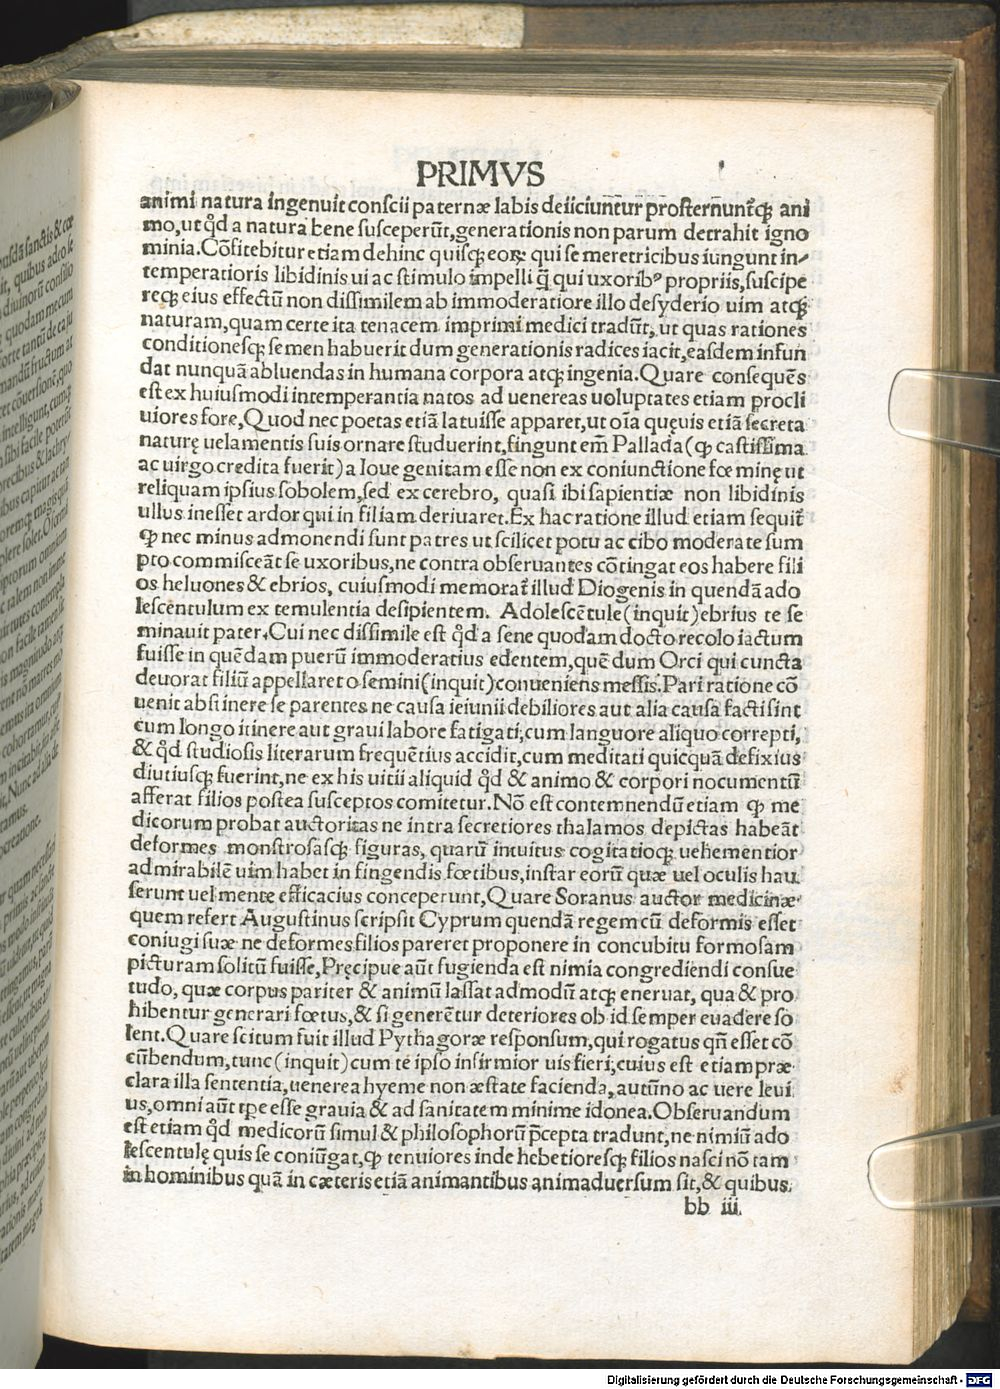 PRIMVS
animi natura ingenuit conscii paternæ labis deiiciuntur prosternunt᷑q; ani
mo, ut q̄d a natura bene susceperūt, generationis non parum detrahit igno
minia. Cōfitebitur etiam dehinc quisq; eoꝝ qui se meretricibus iungunt in-
temperatioris libidinis ui ac stimulo impelli q̄ qui uxoribꝰ propriis, suscipe
req; eius effectū non dissimilem ab immoderatiore illo desyderio uim atq;
naturam, quam certe ita tenacem imprimi medici tradūt, ut quas rationes
conditionesq; semen habuerit dum generationis radices iacit, easdem infun
dat nunquā abluendas in humana corpora atq; ingenia. Quare consequēs
est ex huiusmodi intemperantia natos ad uenereas uoluptates etiam procli
uiores fore, Quod nec poetas etiā latuisse apparet, ut oīa quęuis etiā secreta
naturę uelamentis suis ornare studuerint, fingunt em̄ Pallada (ꝙ castissima
ac uirgo credita fuerit) a Ioue genitam esse non ex coniunctione fœminę ut
reliquam ipsius sobolem, sed ex cerebro, quasi ibi sapientiæ non libidinis
ullus inesset ardor qui in filiam deriuaret. Ex hac ratione illud etiam sequit᷑
ꝙ nec minus admonendi sunt patres ut scilicet potu ac cibo moderate sum
pto commisceāt se uxoribus, ne contra obseruantes cōtingat eos habere fili
os heluones & ebrios, cuiusmodi memorat᷑ illud Diogenis in quendā ado
lescentulum ex temulentia desipientem. Adolescētule (inquit) ebrius te se
minauit pater. Cui nec dissimile est q̄d a sene quodam docto recolo iactum
fuisse in quēdam puerū immoderatius edentem, quē dum Orci qui cuncta
deuorat filiū appellaret o semini (inquit) conueniens messis. Pari ratione cō
uenit abstinere se parentes ne causa ieiunii debiliores aut alia causa facti sint
cum longo itinere aut graui labore fatigati, cum languore aliquo correpti,
& q̄d studiosis literarum frequētius accidit, cum meditati quicquā defixius
diutiusq; fuerint, ne ex his uitii aliquid q̄d & animo & corpori nocumentū
afferat filios postea susceptos comitetur. Nō est contemnendū etiam ꝙ me
dicorum probat auctoritas ne intra secretiores thalamos depictas habeāt
deformes monstrosasq; figuras, quarū intuitus cogitatioq; uehementior
admirabilē uim habet in fingendis fœtibus, instar eorū quæ uel oculis hau
serunt uel mente efficacius conceperunt, Quare Soranus auctor medicinæ
quem refert Augustinus scripsit Cyprum quendā regem cū deformis esset
coniugi suæ ne deformes filios pareret proponere in concubitu formosam
picturam solitū fuisse, Pręcipue aūt fugienda est nimia congrediendi consue
tudo, quæ corpus pariter & animū lassat admodū atq; eneruat, qua & pro
hibentur generari fœtus, & si generētur deteriores ob id semper euadere so
lent. Quare scitum fuit illud Pythagoræ responsum, qui rogatus qn̄ esset cō
cūbendum, tunc (inquit) cum te ipso infirmior uis fieri, cuius est etiam præ
clara illa sententia, uenerea hyeme non æstate facienda, autūno ac uere leui
us, omni aūt tp̄e esse grauia & ad sanitatem minime idonea. Obseruandum
est etiam q̄d medicorū simul & philosophorū p̄cepta tradunt, ne nimiū ado
lescentulę quis se coniūgat, ꝙ tenuiores inde hebetioresq; filios nasci nō tam
in hominibus quā in cæteris etiā animantibus animaduersum sit, & quibus
bb iii
Digitalisierung gefördert durch die Deutsche Forschungsgemeinschaft - DFG